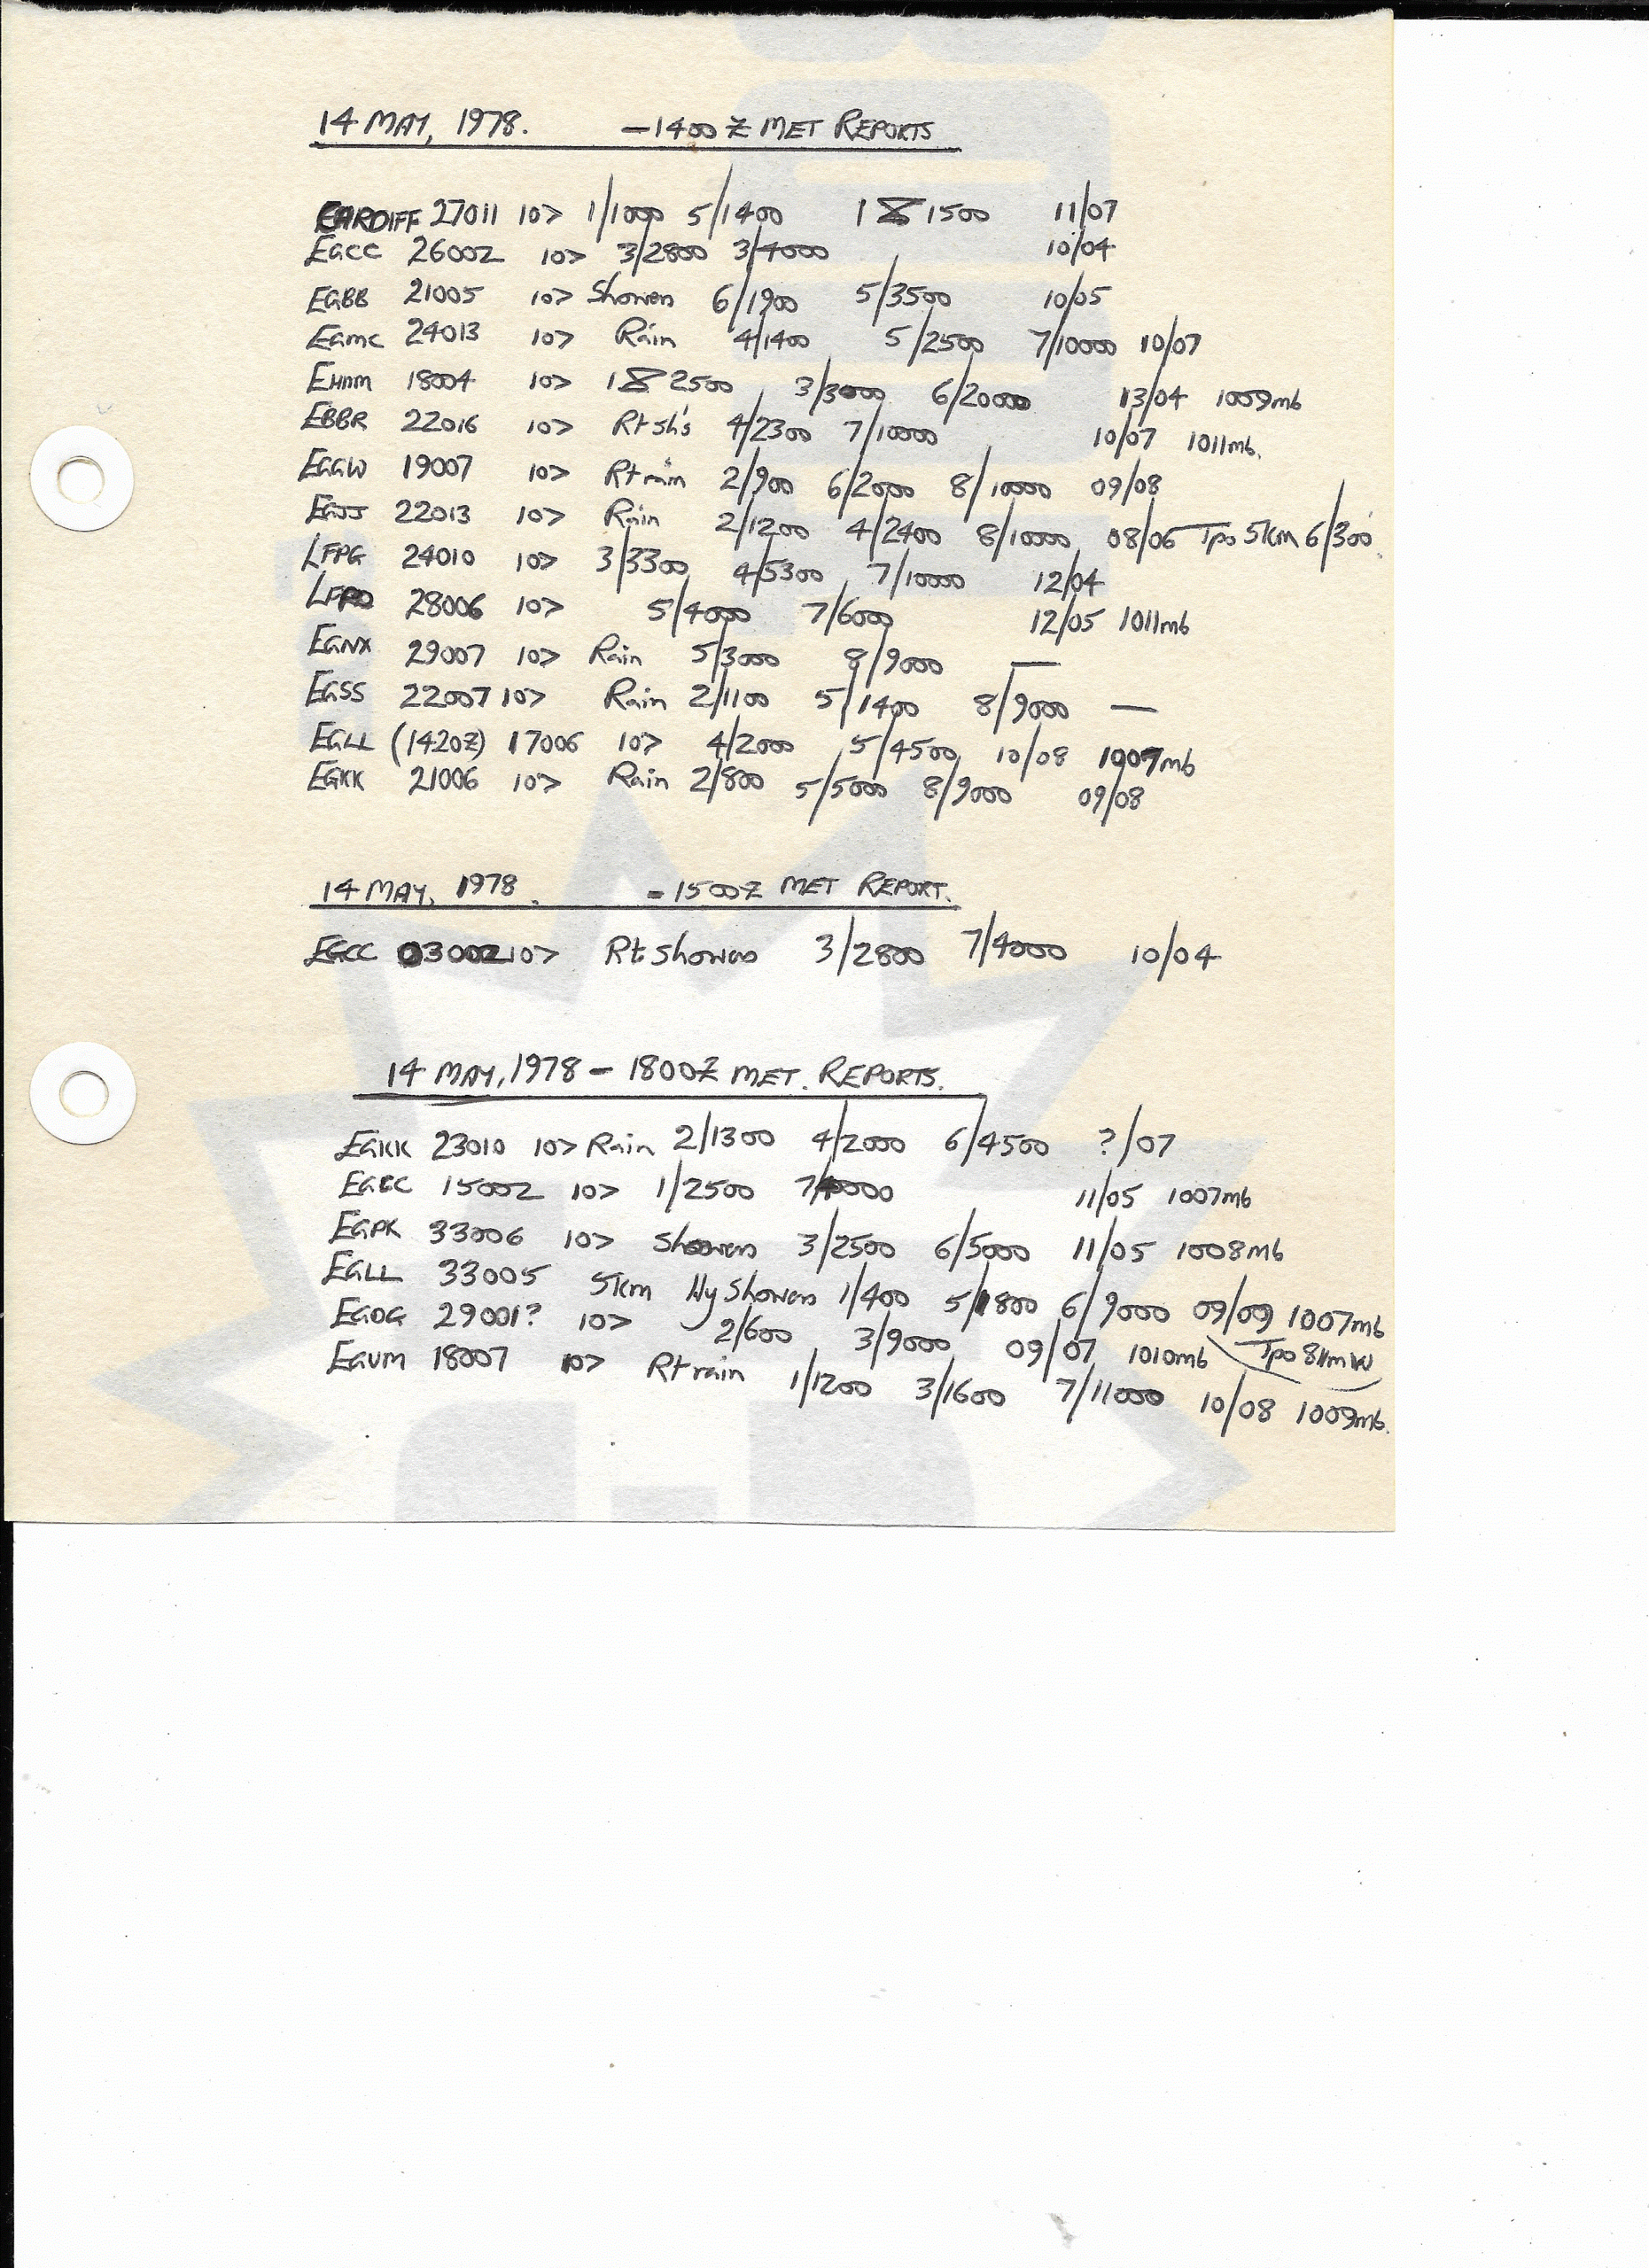 14 MAY, 1978. - 1400Z MET REPORTS
CARDIFF 27011 10> 1/1000 5/1400 1 1500 11/07
EGCC 26002 10> 3/2800 3/4000 10/04
EGBB 21005 10> Showers 6/1900 5/3500 10/05
EGMC 24013 10> Rain 4/1400 5/2500 7/10000 10/07
EHAM 18004 10> 1 2500 3/3000 6/20000 13/04 1009mb
EBBR 22016 10> Rt sh's 4/2300 7/10000 10/07 1011mb.
EGGW 19007 10> Rt rain 2/900 6/2000 8/10000 09/08
EGJJ 22013 10> Rain 2/1200 4/2400 8/10000 08/06 Tpo 5km 6/300
LFPG 24010 10> 3/3300 4/5300 7/10000 12/04
LFPO 28006 10> 5/4000 7/6000 12/05 1011mb
EGNX 29007 10> Rain 5/3000 8/9000 —
EGSS 22007 10> Rain 2/1100 5/1400 8/9000 —
EGLL (1420Z) 17006 10> 4/2000 5/4500 10/08 1007mb
EGKK 21006 10> Rain 2/800 5/5000 8/9000 09/08
14 MAY, 1978. - 1500Z MET REPORT.
EGCC 03002 10> Rt Showers 3/2800 7/4000 10/04
14 MAY, 1978 - 1800Z MET. REPORTS.
EGKK 23010 10> Rain 2/1300 4/2000 6/4500 ?/07
EGCC 15002 10> 1/2500 7/4000 11/05 1007mb
EGPK 33006 10> Showers 3/2500 6/5000 11/05 1008mb
EGLL 33005 5km Hy Showers 1/400 5/1800 6/9000 09/09 1007mb
EGDG 29001? 10> 2/600 3/9000 09/07 1010mb Tpo
EGUM 18007 10> Rt rain 1/1200 3/1600 7/11000 10/08 1009mb.